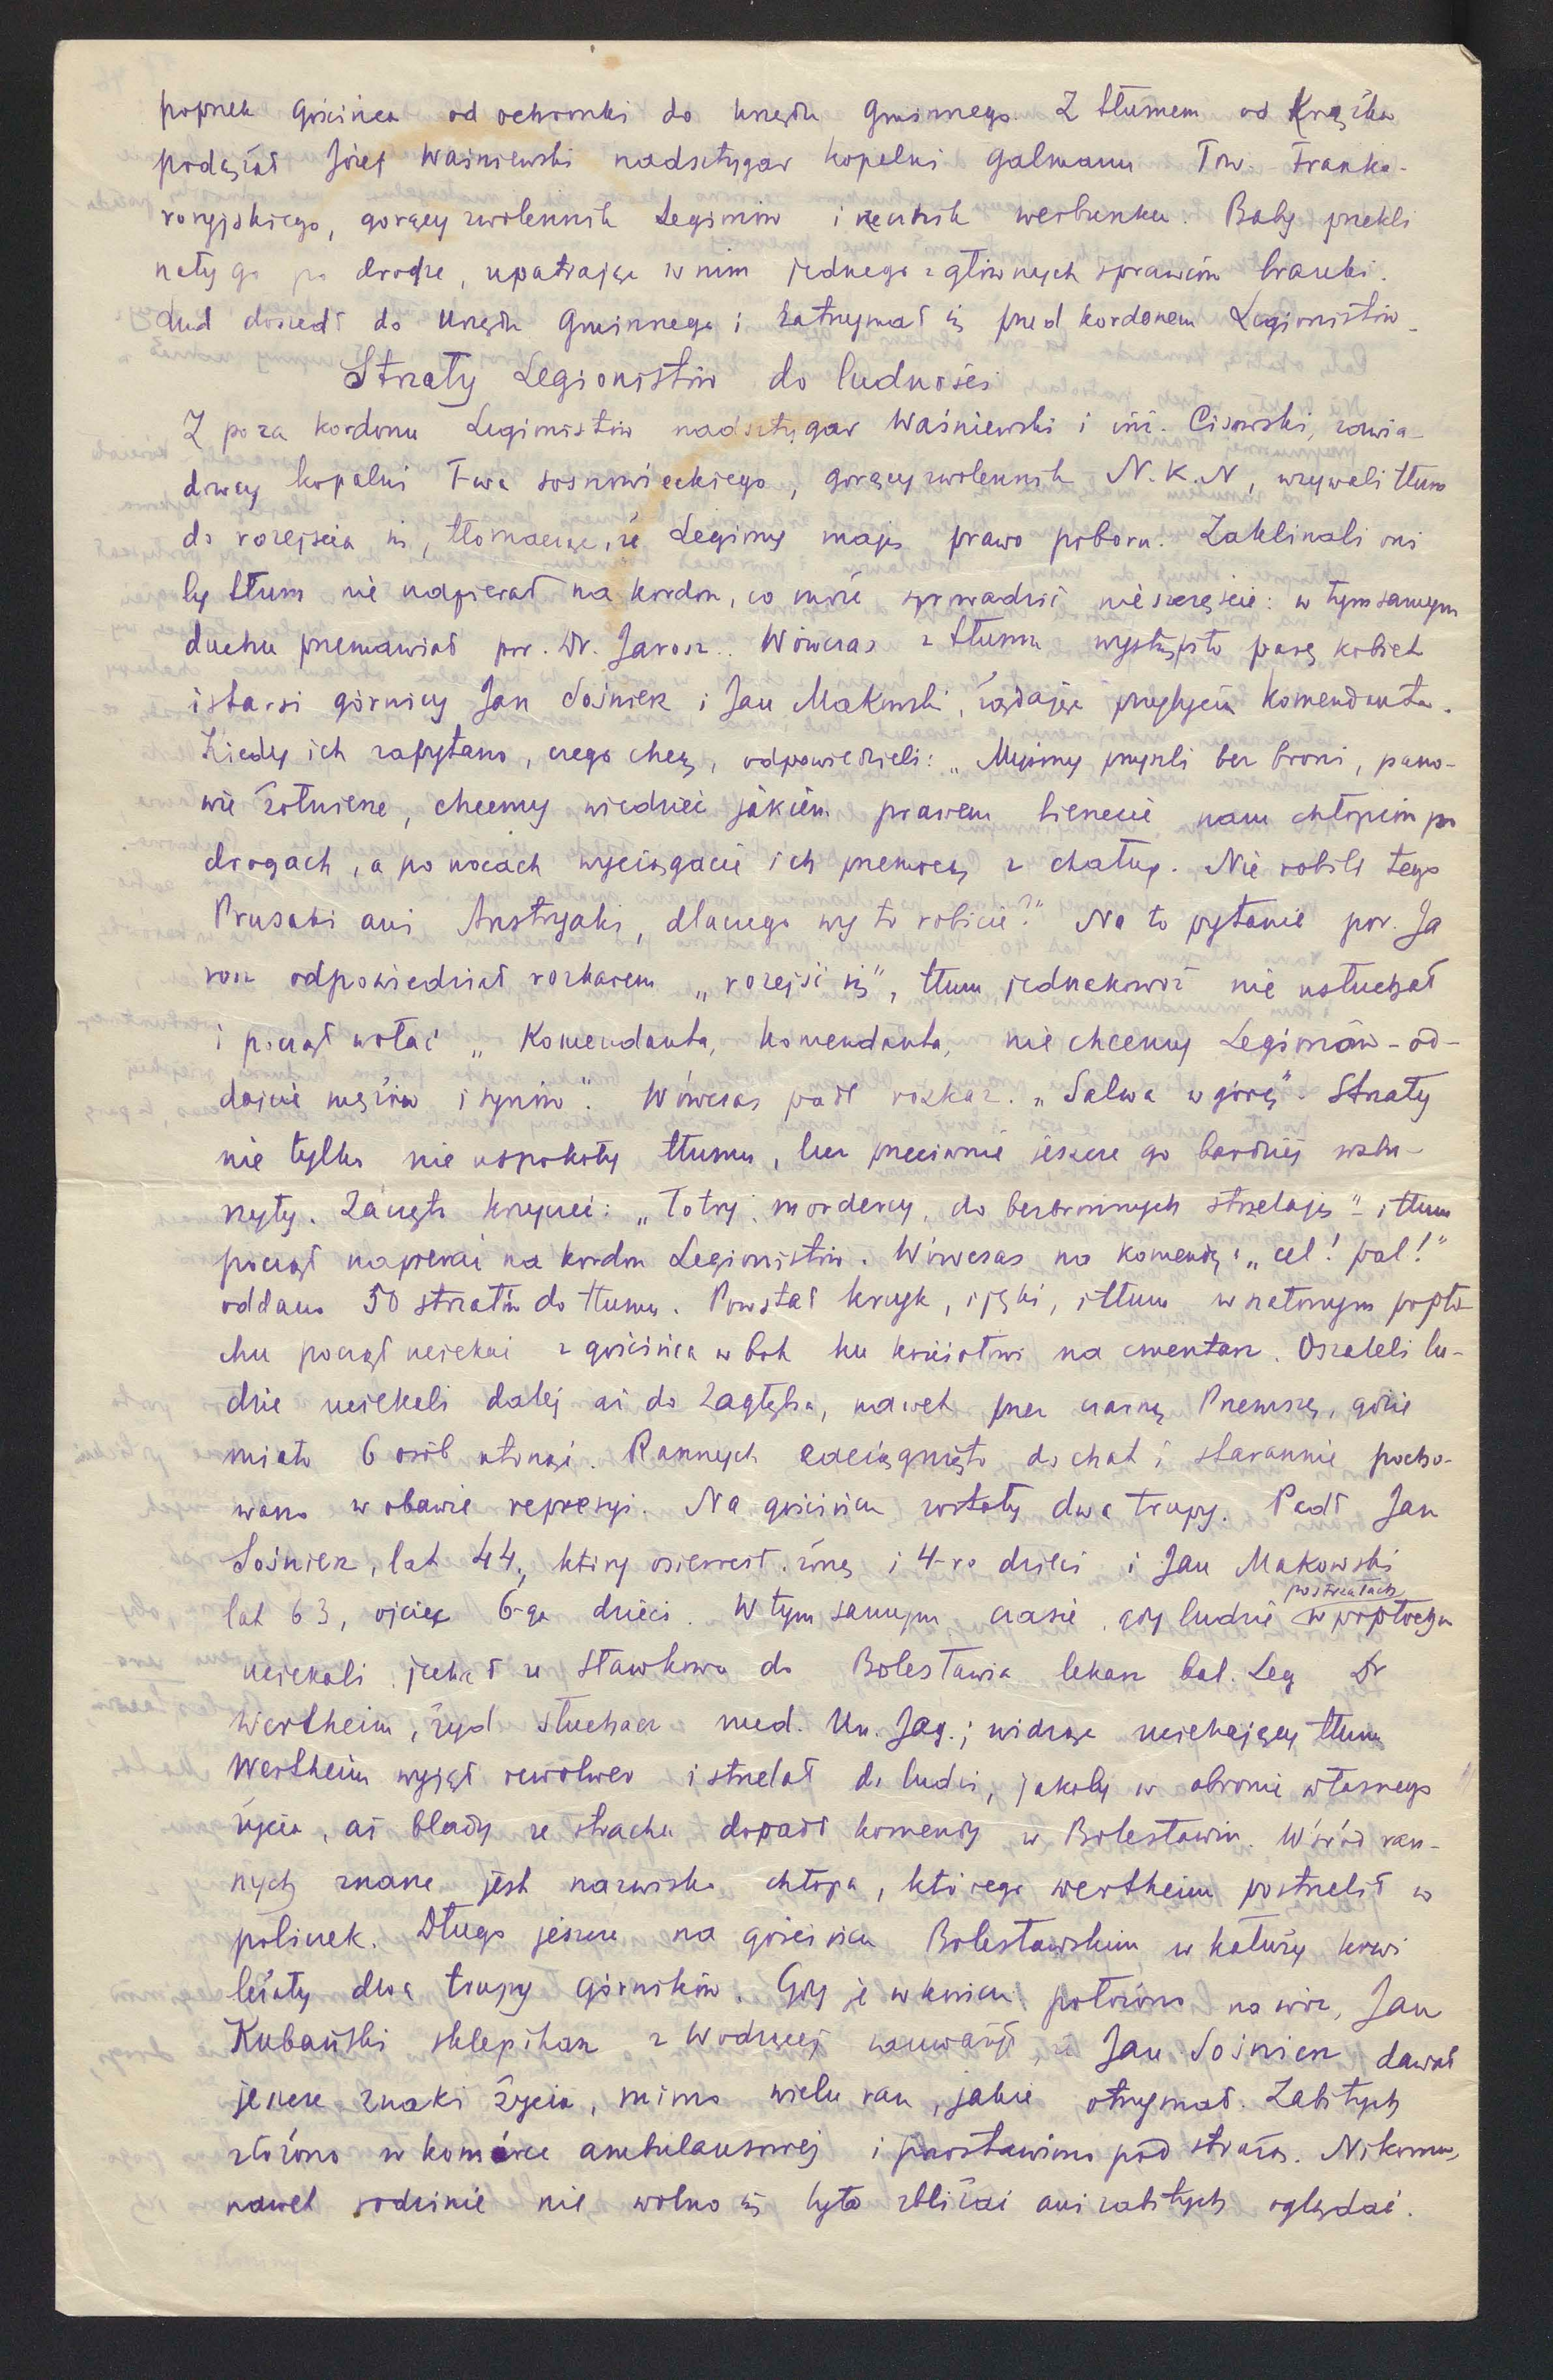 poprzek gościńca od ochronki do urzędu Gminnego. Z tłumem od Krążka
podążał Józef Waśniewski nadsztygar kopalni Galmanu Tow. Franko-
rosyjskiego, gorący zwolennik Legionów i werbunku. Baby przekli
nały go po drodze, upatrując w nim jednego z głównych sprawców branki.
Lud doszedł do Urzędu Gminnego i zatrzymał się przed kordonem Legionistów.
Strzały Legionistów do ludności
Z poza kordonu Legionistów nadsztygar Waśniewski i inż. Cisowski, zawia-
dowcy kopalni T-wa sosnowieckiego, gorący zwolennik N.K.N, wzywali tłum
do rozejścia się, tłomacząc, że Legiony mają prawo poboru. Zaklinali oni
by tłum nie napierał na kordon, co może sprowadzić nieszczęście: w tym samym
duchu przemawiał por. Dr. Jarosz. Wówczas z tłumu wystąpiło parę kobiet
i starsi górnicy Jan Sośnierz i Jan Makowski, żądając przybycia komendanta.
Kiedy ich zapytano, czego chcą, odpowiedzieli: „Myśmy przyszli bez broni, pano-
wie żołnierze, chcemy wiedzieć jakiem prawem bierzecie nam chłopców po
drogach, a po nocach wyciągacie ich przemocą z chałup. Nie robili tego
Prusaki ani Austryjaki, dlaczego wy to robicie?" Na to pytanie por. Ja
rosz odpowiedział rozkazem „rozejść się", tłum jednakowoż nie usłuchał
i począł wołać „Komendanta, komendanta, nie chcemy Legionów - od-
dajcie mężów i synów". Wówczas padł rozkaz. „Salwa w górę". Strzały
nie tylko nie uspokoły tłumu, lecz przeciwnie jeszcze go bardziej wzbu-
rzyły. Zaczęto krzyczeć: „Łotry, mordercy, do bezbronnych strzelają" - i tłum
począł napierać na kordon Legionistów. Wówczas na komendę: „cel! pal!"
oddano 50 strzałów do tłumu. Powstał krzyk, i jęki, i tłum w szalonym popło-
chu począł uciekać z gościńca w bok ku kościołowi na cmentarz. Oszaleli lu-
dzie uciekali dalej aż do Zagłębia, nawet przez czarną Przemszę, gdzie
miało 6 osób utonąć. Rannych zaciągnięto do chat i starannie pocho-
wano w obawie represyi. Na gościńcu zostały dwa trupy. Padł Jan
Sośnierz, lat 44, który osierocił żonę i 4-ro dzieci i Jan Makowski
lat 63, ojciec 6-ga dzieci. W tym samym czasie, gdy ludzie po strzałach w popłochu
uciekali jechał ze Sławkowa do Bolesławia lekarz bal. Leg Dr
Wertheim, żyd słuchacz med. Un. Jag.; widząc uciekający tłum
Wertheim wyjął rewolwer i strzelał do ludzi, jakoby w obronie własnego
życia, aż blady ze strachu dopadł komendy w Bolesławiu. Wśród ran-
nych znane jest nazwisko chłopa, którego Wertheim postrzelił w
policzek. Długo jeszcze na gościńcu Bolesławskim w kałuży krwi
leżały dwa trupy górników. Gdy je w końcu położono na wóz, Jan
Kubański sklepikarz z Wodącej zauważył, że Jan Sośnierz dawał
jeszcze znaki życia, mimo wielu ran, jakie otrzymał. Zabitych
złożono w komórce ambulansowej i postawiono pod strażą. Nikomu,
nawet rodzinie nie wolno się było zbliżać ani zabitych oglądać.